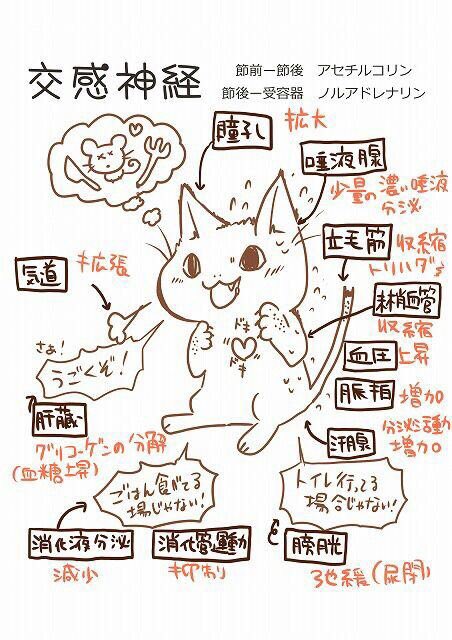 交感神経
節前ー節後　アセチルコリン
節後ー受容器　ノルアドレナリン
瞳孔
拡大
唾液腺
少量の濃い唾液
分泌
立毛筋
収縮
トリハダ
気道
拡張
末梢血管
収縮
ドキ
ドキ
血圧
上昇
さぁ!
うごくぞ!
脈拍
増加
肝臓
グリコーゲンの分解
(血糖上昇)
汗腺
分泌活動
増加
ごはん食べてる
場じゃない!
トイレ行ってる
場合じゃない!
消化液分泌
減少
消化管運動
抑制
膀胱
弛緩(尿閉)